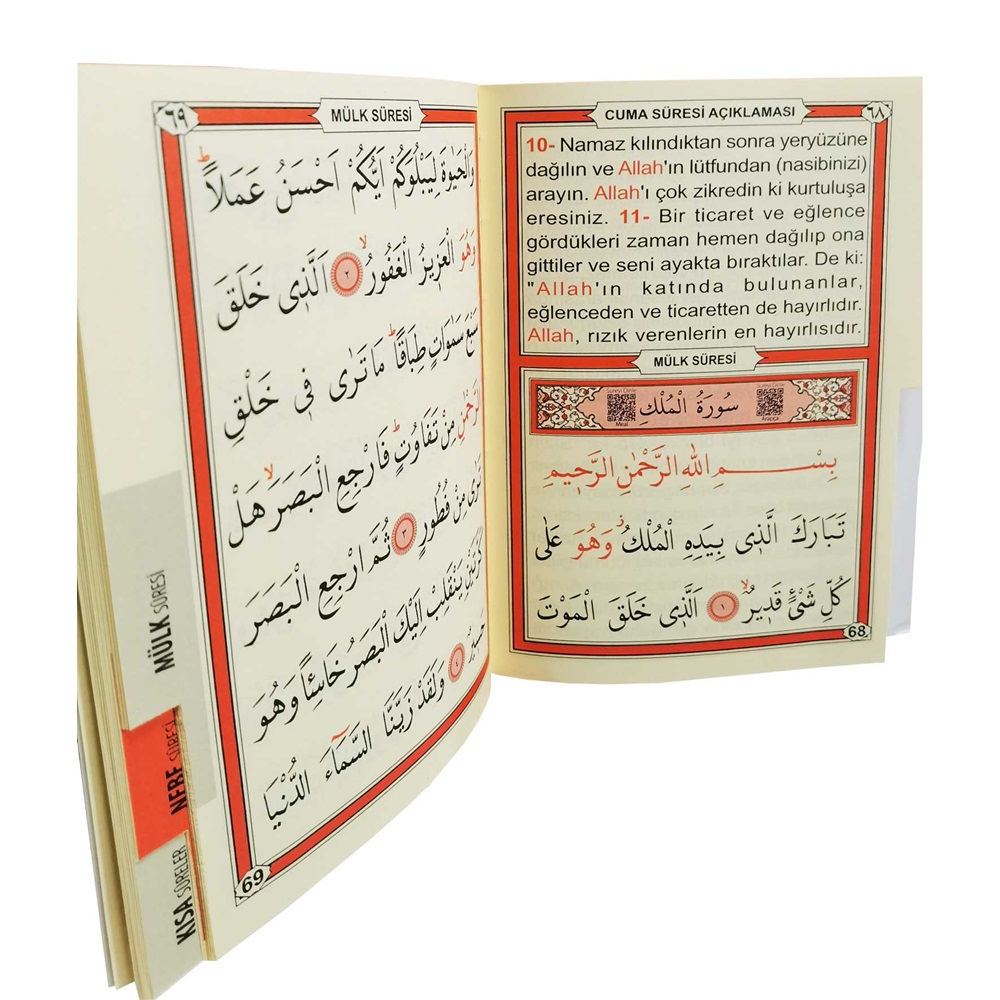 CUMA SÛRESİ AÇIKLAMASI
٦٨
10- Namaz kılındıktan sonra yeryüzüne
dağılın ve Allah'ın lütfundan (nasibinizi)
arayın. Allah'ı çok zikredin ki kurtuluşa
eresiniz. 11- Bir ticaret ve eğlence
gördükleri zaman hemen dağılıp ona
gittiler ve seni ayakta bıraktılar. De ki:
"Allah'ın katında bulunanlar,
eğlenceden ve ticaretten de hayırlıdır.
Allah, rızık verenlerin en hayırlısıdır.
MÜLK SÛRESİ
سُورَةُ الْمُلْكِ
Meal
Arapça
بِسْــــــمِ اللهِ الرَّحْمٰنِ الرَّحٖيمِ
تَبَارَكَ الَّذٖى بِيَدِهِ الْمُلْكُ وَهُوَ عَلٰى
كُلِّ شَىْءٍ قَدٖيرٌ ١ اَلَّذٖى خَلَقَ الْمَوْتَ
68
٦٩
MÜLK SÛRESİ
وَالْحَيٰوةَ لِيَبْلُوَكُمْ اَيُّكُمْ اَحْسَنُ عَمَلاً
وَهُوَ الْعَزٖيزُ الْغَفُورُ ٢ اَلَّذٖى خَلَقَ
سَبْعَ سَمٰوَاتٍ طِبَاقًا مَا تَرٰى فٖى خَلْقِ
الرَّحْمٰنِ مِنْ تَفَاوُتٍ فَارْجِعِ الْبَصَرَ هَلْ
تَرٰى مِنْ فُطُورٍ ٣ ثُمَّ ارْجِعِ الْبَصَرَ
كَرَّتَيْنِ يَنْقَلِبْ اِلَيْكَ الْبَصَرُ خَاسِئًا وَهُوَ
حَسٖيرٌ ٤ وَلَقَدْ زَيَّنَّا السَّمَاءَ الدُّنْيَا
69
MÜLK SÛRESİ
NEBE SÛRESİ
KISA SÛRELER